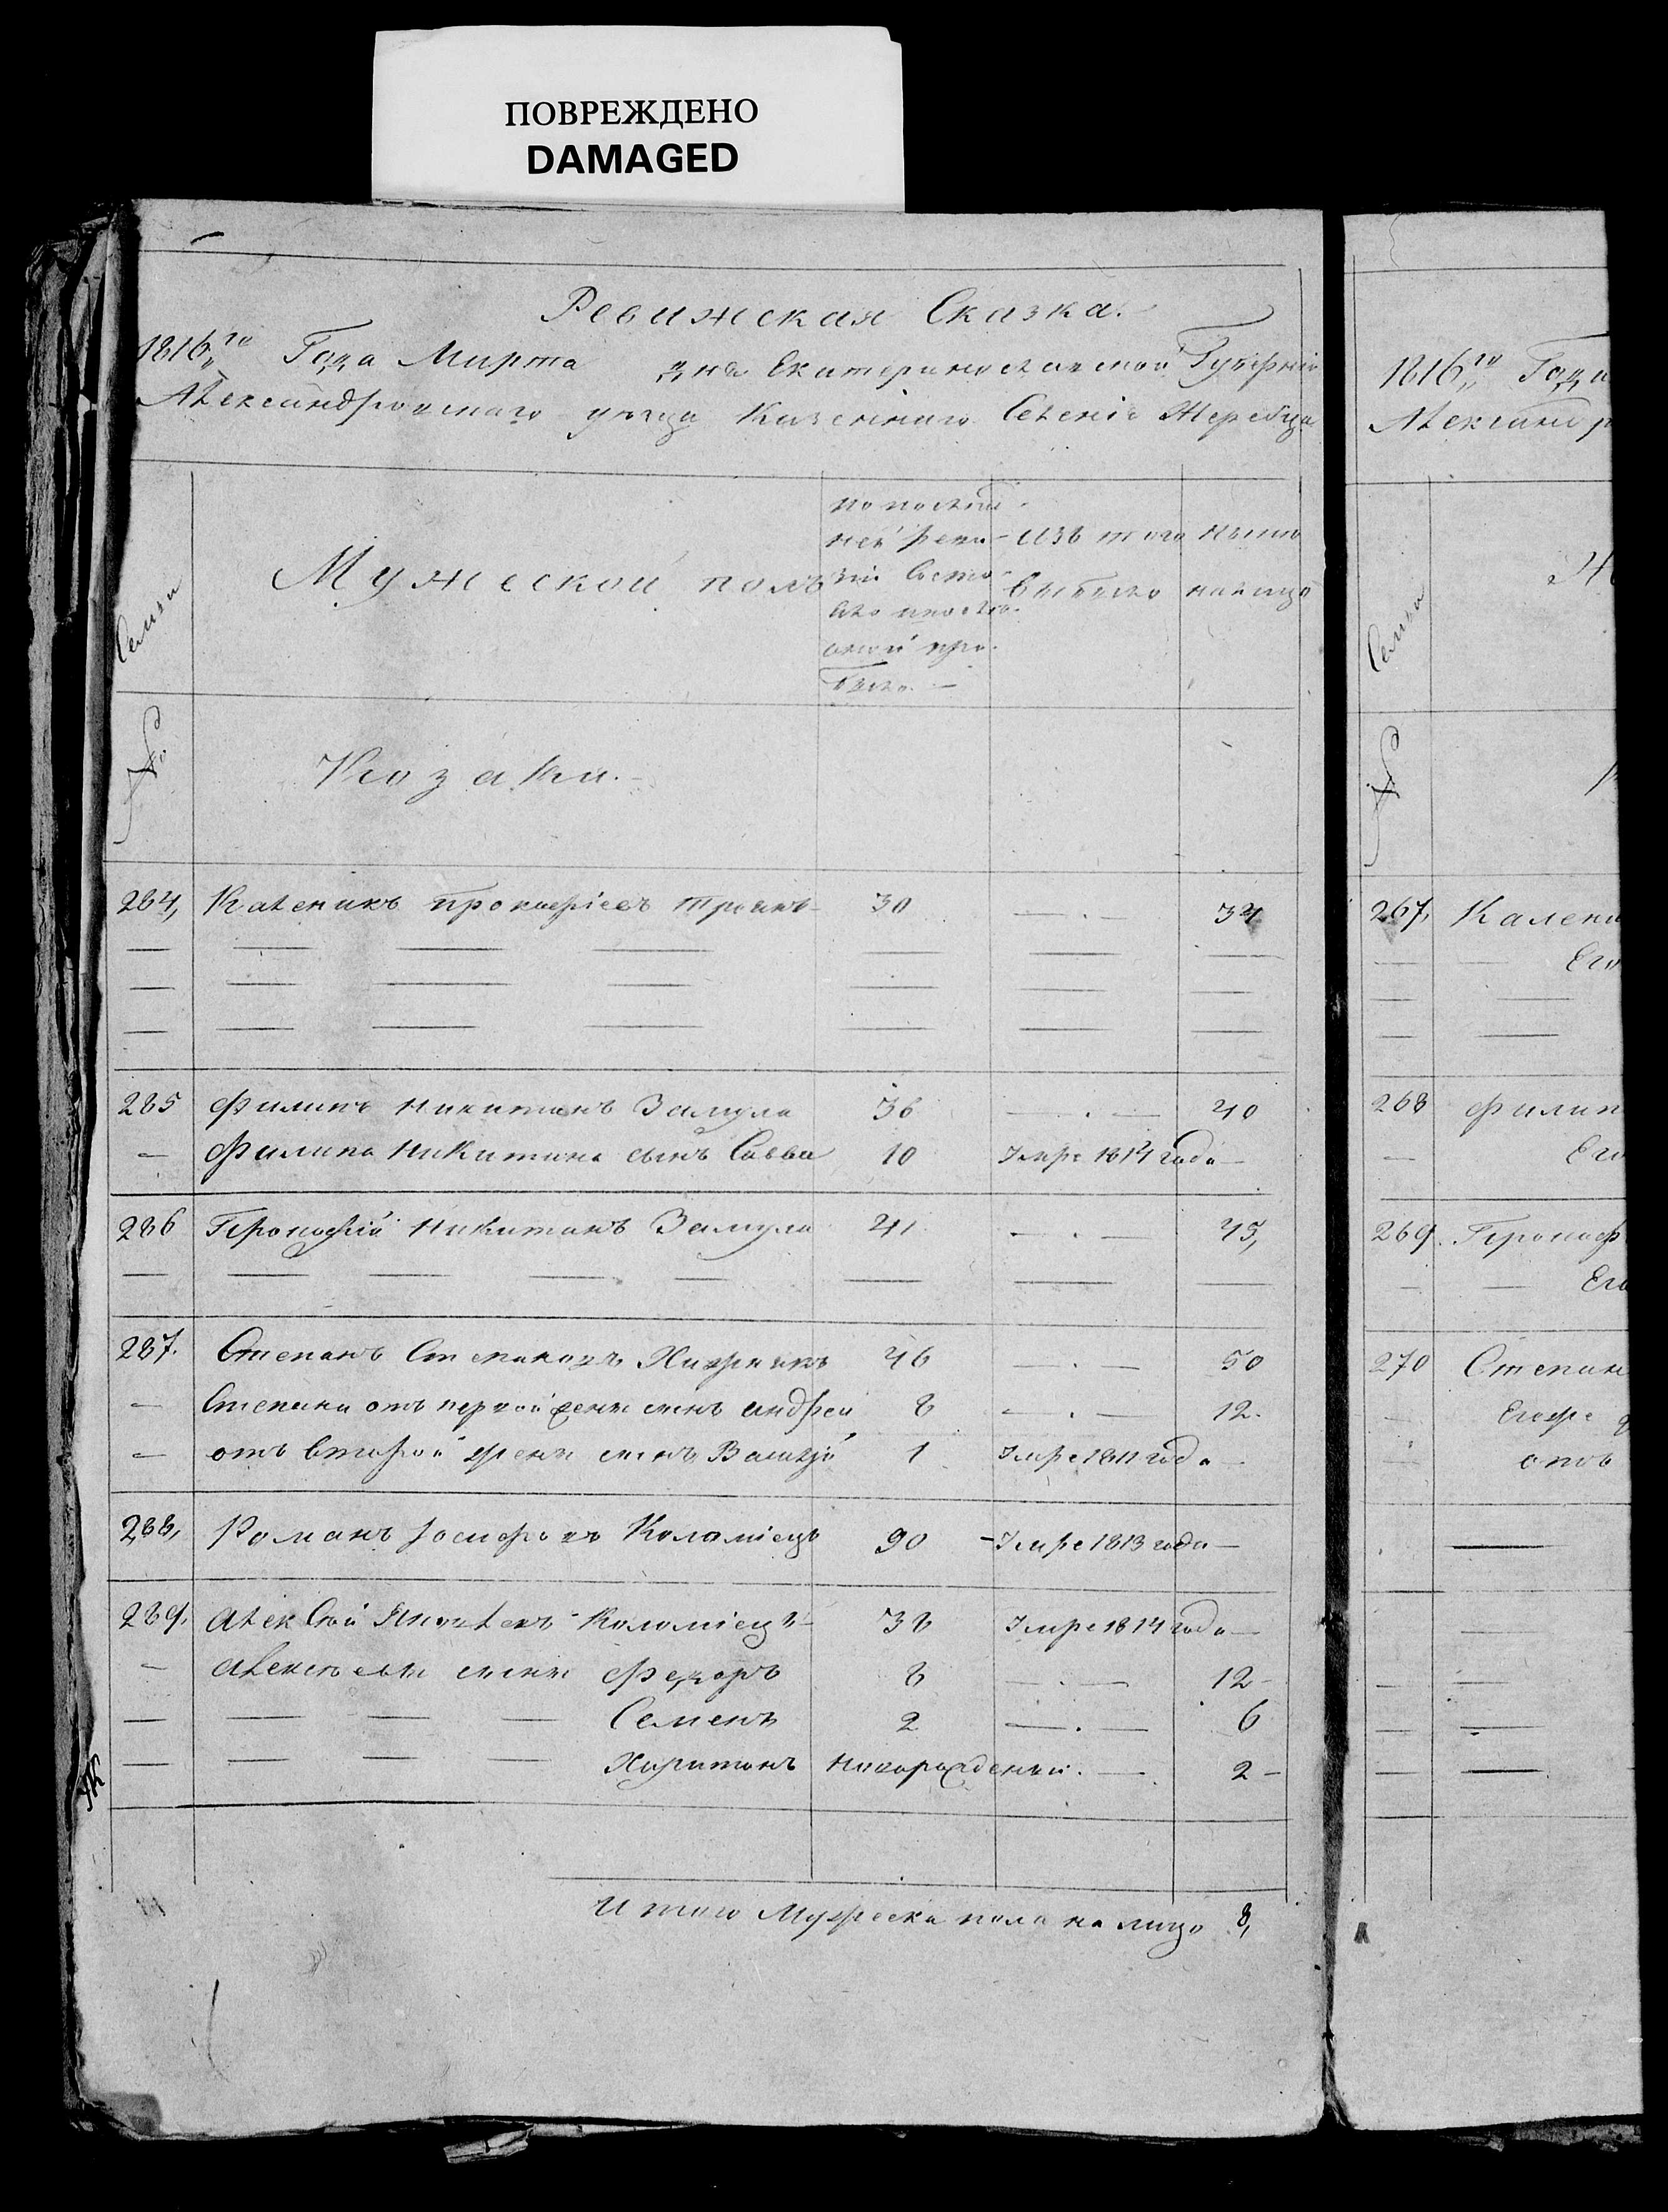 ПОВРЕЖДЕНО
DAMAGED
Ревижская Сказка.
1816,,го Года Марта дня Екатеринославской Губернии
Александровскаго уезда Казеннаго Селения Жеребца
№ Семьи
Мужеской полъ
по послед-
ней реви-
зии состо-
яло и после
оной при-
было.
Изъ того
выбыло
Ныне
налицо
Козаки.
264, Каленикъ Прокофіевъ 30 — . — 34
265 Филипъ Никитинъ Замула 36 — . — 40
— Филипа Никитина сынъ Савва 10 Умре 1814 года —
266 Прокофій Никитинъ Замула 41 — . — 45,
267. Степанъ Степановъ 46 — . — 50
— Степана отъ первой жены сынъ андрей 8 — . — 12.
— отъ второй жены сынъ Василій 1 Умре 1811 года —
268, Романъ Коломіецъ 90 – Умре 1813 года —
269, Алексей Яковлевъ Коломіецъ 38 Умре 1814 года —
— Алексеевы сыны Федоръ 8 — . — 12 –
— — — — Семенъ 2 — . — 6
— — — — Харитонъ новорожденый . — 2 –
Итого Мужеска пола на лицо 8,
1816,,го Года
Александр
№ Семьи
267, Калени
Его
268 Филип
Его
269. Прокоф
Его
270 Степан
отъ